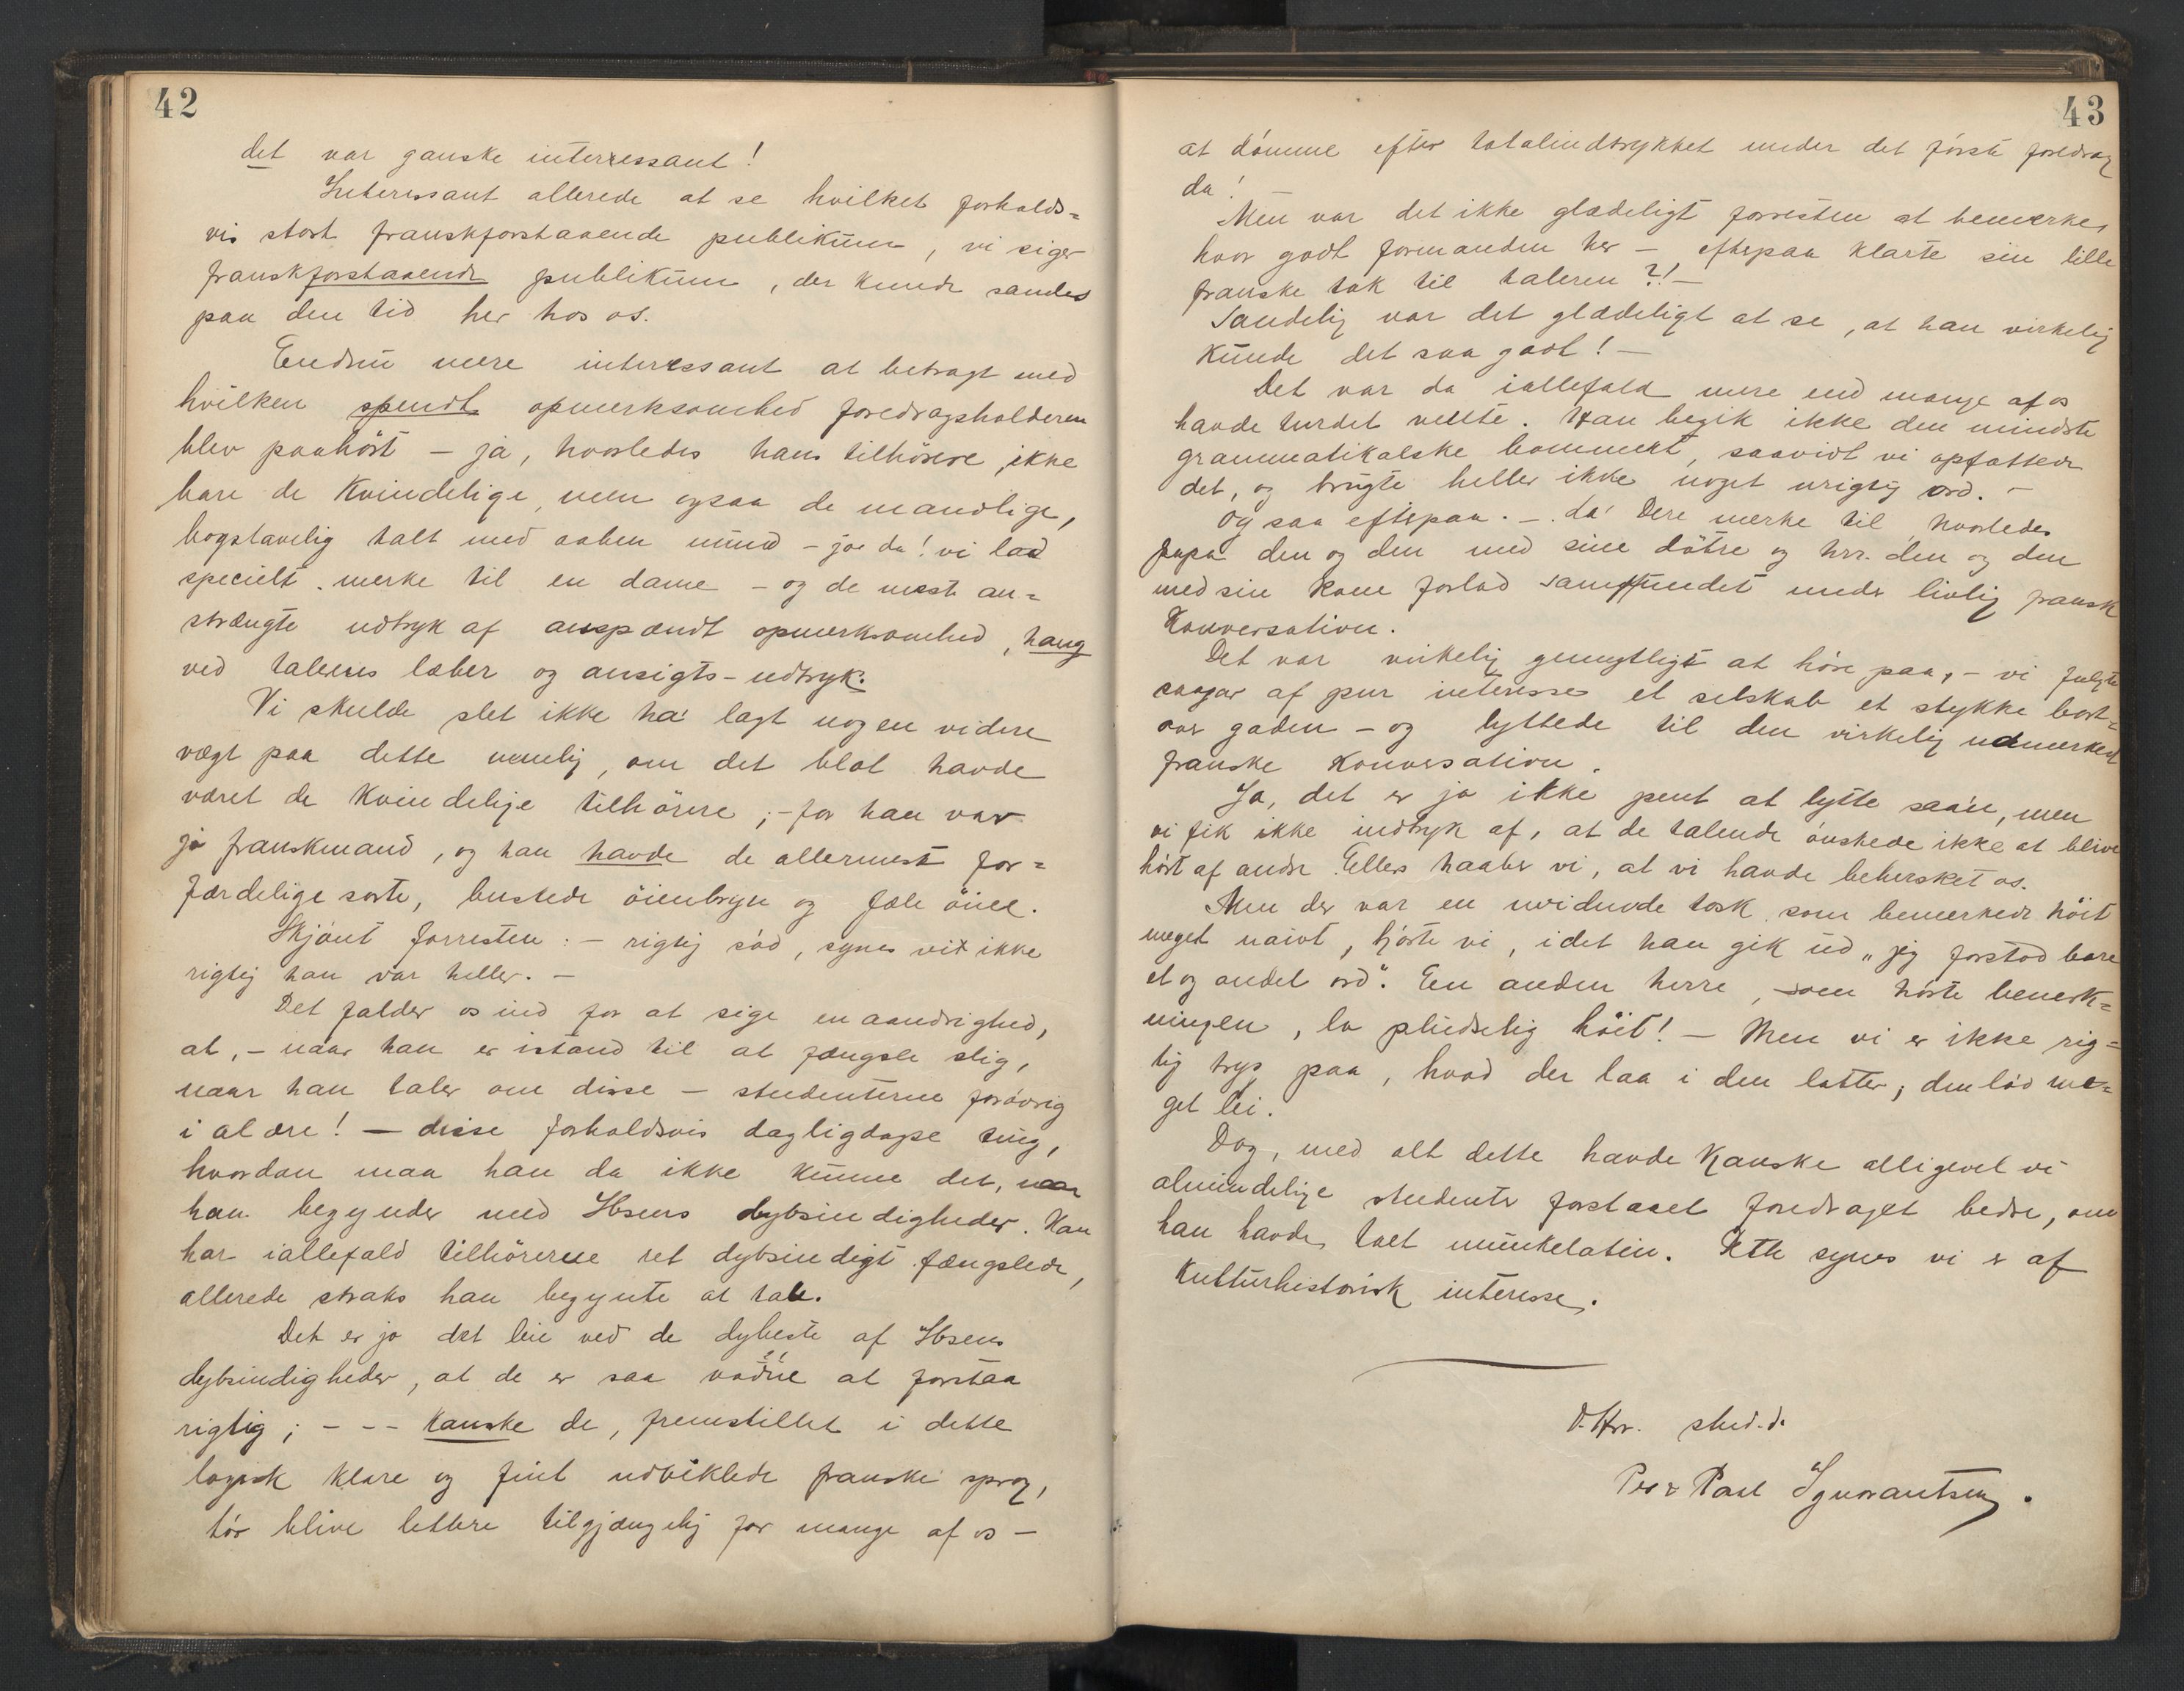 42
det var ganske interressant!
Interessant allerede at se hvilket forholds=
vis stort franskforstaaende publikum, vi siger
franskforstaaende publikum, der kunde samles
paa den tid her hos os.
Endnu mere interessant at betragt med
hvilken spendt opmerksomhed foredragsholderen
blev paahört - ja, hvorledes hans tilhörere, ikke
bare de kvindelige, men ogsaa de mandlige,
bogstavelig talt med aaben mund - jo da! vi lad
specielt merke til en dame - og de mest an=
strængte udtryk af anspændt opmerksomhed, hang
ved talerens læber og ansigts-udtryk.
Vi skulde slet ikke ha' lagt nogen videre
vægt paa dette nemlig, om det blot havde
været de kvindelige tilhörere; - for han var
jo franskmand, og han havde de allermest for=
færdelige sorte, buskede öienbryn og fæle öine.
Skjönt forresten: - rigtig söd, synes vi ikke
rigtig han var heller. -
Det falder os ind for at sige en aandrighed,
at, - naar han er istand til at fængsle slig,
naar han taler om disse - studenterne forövrig
i al ære! - disse forholdsvis dagligdagse ting,
hvordan maa han da ikke kunne det, naar
han begynder med Ibsens dybsindigheder. Han
har iallefald tilhörerne ret dybsindigt fængslede,
allerede straks han begynte at tale.
Det er jo det leie ved de dybeste af Ibsens
dybsindigheder, at de er saa vonne at forstaa
rigtig; - - - kanske de, fremstillet i dette
logisk klare og fint udviklede franske sprog,
tör blive lettere tilgjængelig for mange af os -
43
at dömme efter totalindtrykket under det förste foredrag
da!
Men var det ikke glædeligt forresten at bemerke,
hvor godt formanden her - efterpaa klarte sin lille
franske tak til taleren?! -
Sandelig var det glædeligt at se, at han virkelig
kunde det saa godt! -
Det var da iallefald mere end mange af os
havde turdet vente. Han begik ikke den mindste
grammatikalske bommert, saavidt vi opfattede
det, og brugte heller ikke noget urigtig ord. -
Og saa efterpaa. - . La' Dere merke til, hvorledes
papa den og den med sine dötre og hrr. den og den
med sin kone forlod samfundet under livlig fransk
konversation.
Det var virkelig gemytligt at höre paa, - vi fulgte
saagar af pur interesse et selskab et stykke bort=
over gaden - og lyttede til den virkelig udmerket
franske konversation.
Ja, det er jo ikke pent at lytte saa'n, men
vi fik ikke indtryk af, at de talende önskede ikke at blive
hört af andre. Ellers haaber vi, at vi havde behersket os.
Men der var en uvidende tosk som bemerkede höit
meget naivt, hörte vi, idet han gik ud „jeg forstod bare
et og andet ord". En anden herre, som hörte bemerk=
ningen, lo pludselig höit! - Men vi er ikke rig=
tig tryg paa, hvad der laa i den latter; den löd me=
get lei.
Dog, med alt dette havde kanske alligevel vi
almindelige studenter forstaaet foredraget bedre, om
han havde talt munkelatin. Dette synes vi er af
kulturhistorisk interesse.
D. Hrr. stud. d.
Per & Paal Ignorantsen.